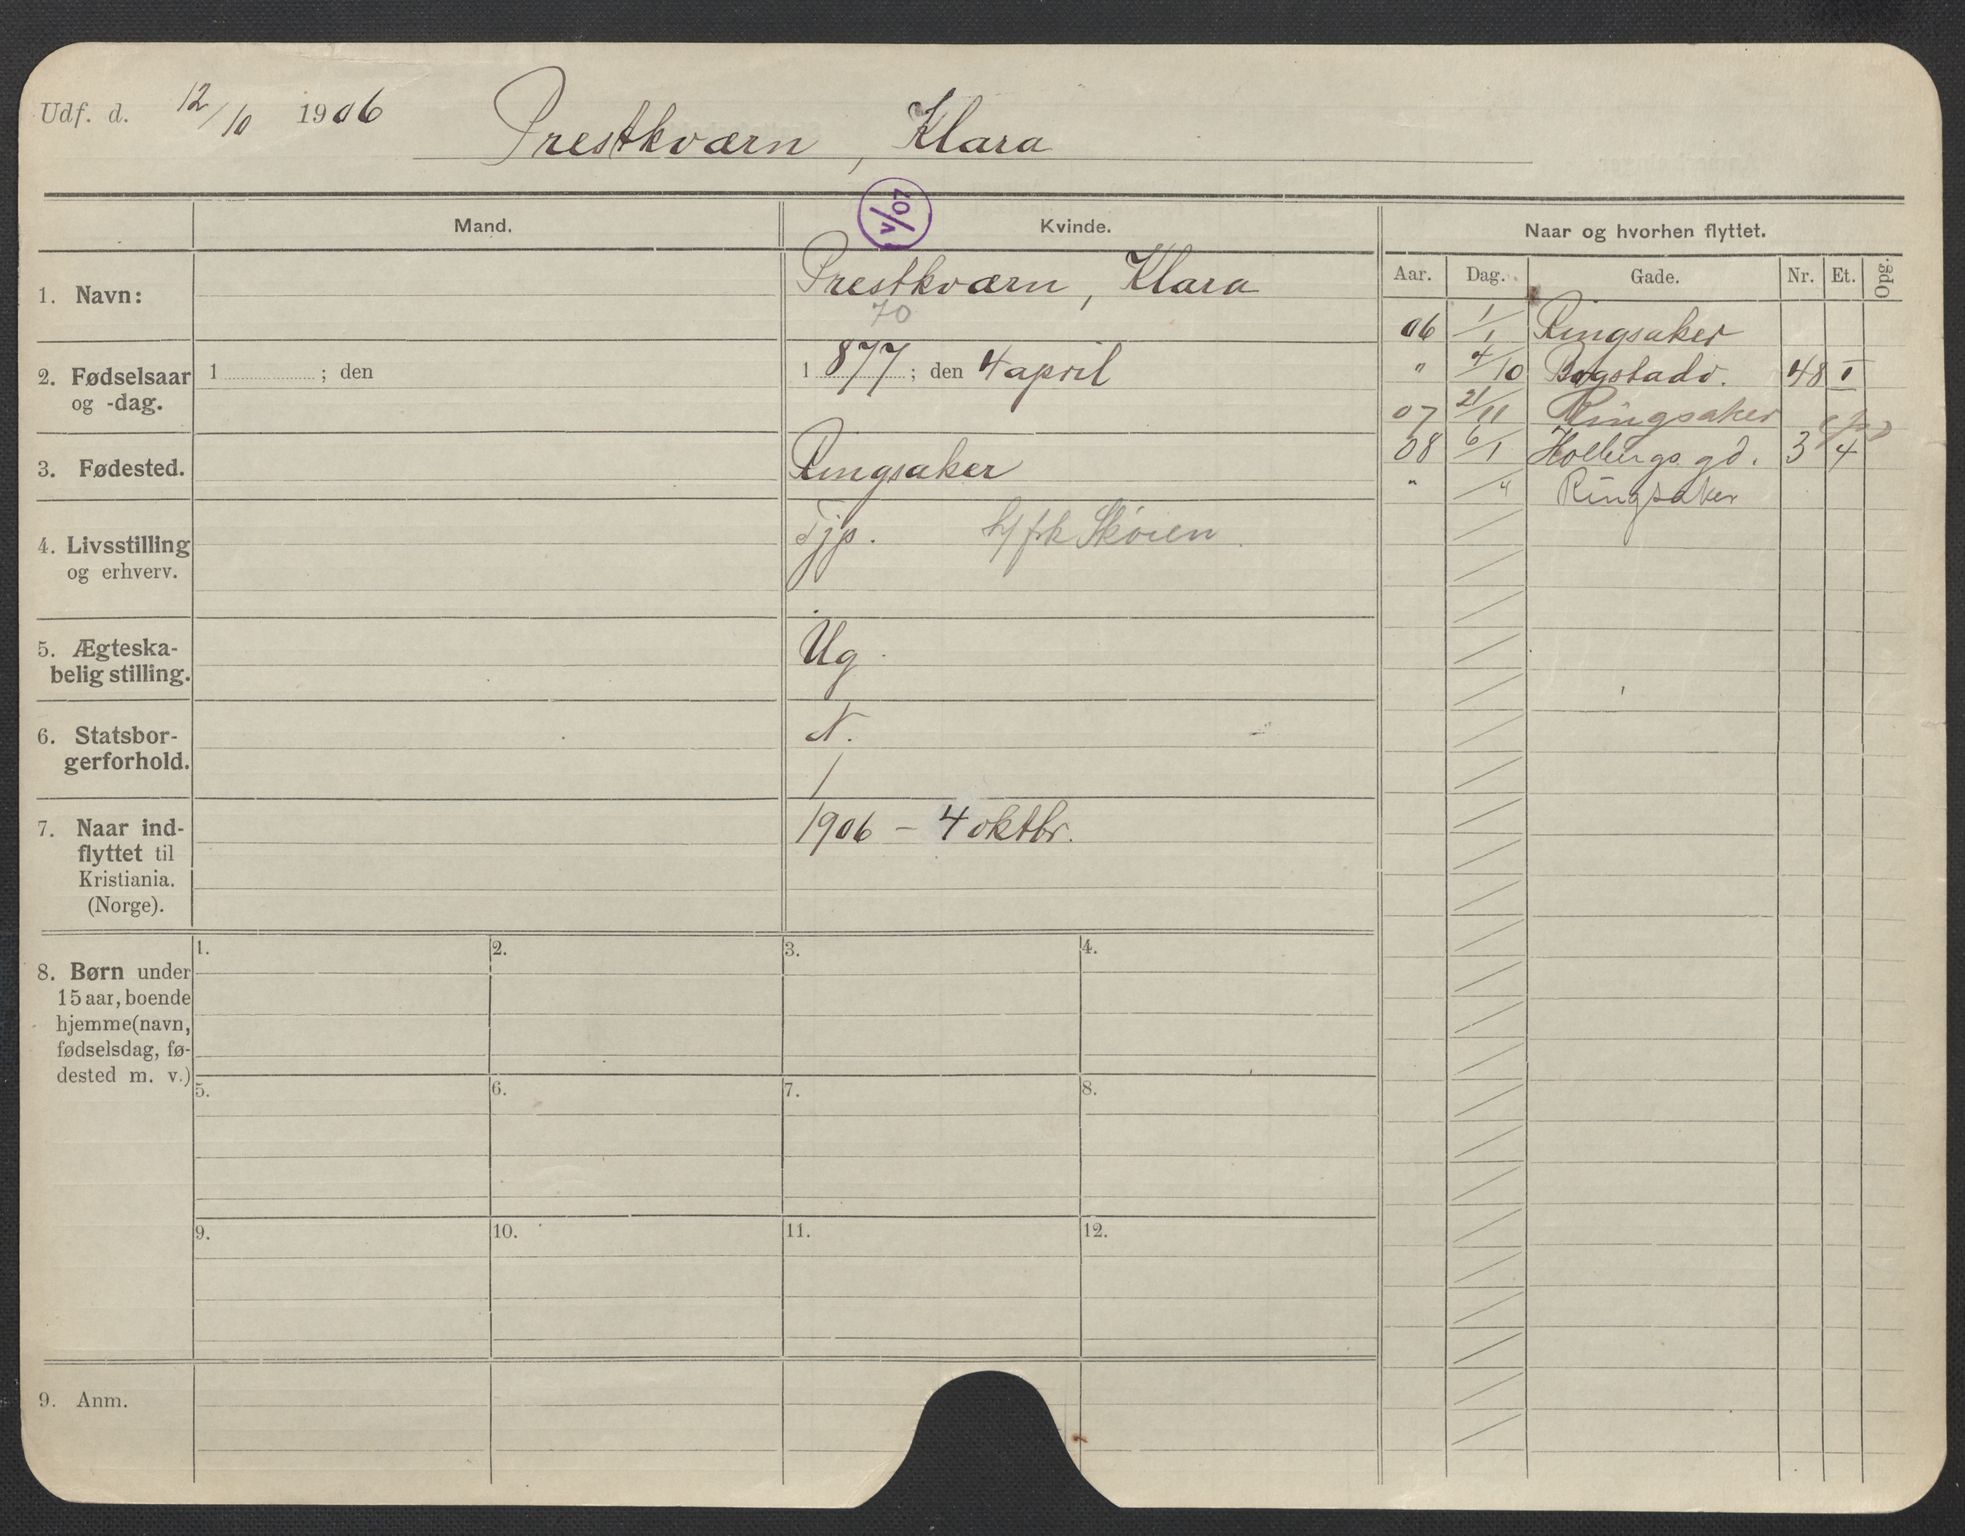 Udf. d. 12/10 1906
Prestkværn, Klara
V/07
Mand.
Kvinde.
Naar og hvorhen flyttet.
Aar. Dag. Gade. Nr. Et. Opg.
1. Navn:
Prestkværn, Klara
70
2. Fødselsaar
og -dag.
1 ; den
1 877 ; den 4 april
3. Fødested.
Ringsaker
4. Livsstilling
og erhverv.
Tjp. h/frk Skøien
5. Ægteska-
belig stilling.
Ug.
6. Statsbor-
gerforhold.
N.
/
7. Naar ind-
flyttet til
Kristiania.
(Norge).
1906 – 4 oktbr.
06 1/1 Ringsaker
" 4/10 Bogstadv. 48 I
07 21/11 Ringsaker
08 6/1 Holbergs gd. 3 4
" /4 Ringsaker
8. Børn under
15 aar, boende
hjemme (navn,
fødselsdag, fø-
dested m. v.)
1. 2. 3. 4.
5. 6. 7. 8.
9. 10. 11. 12.
9. Anm.